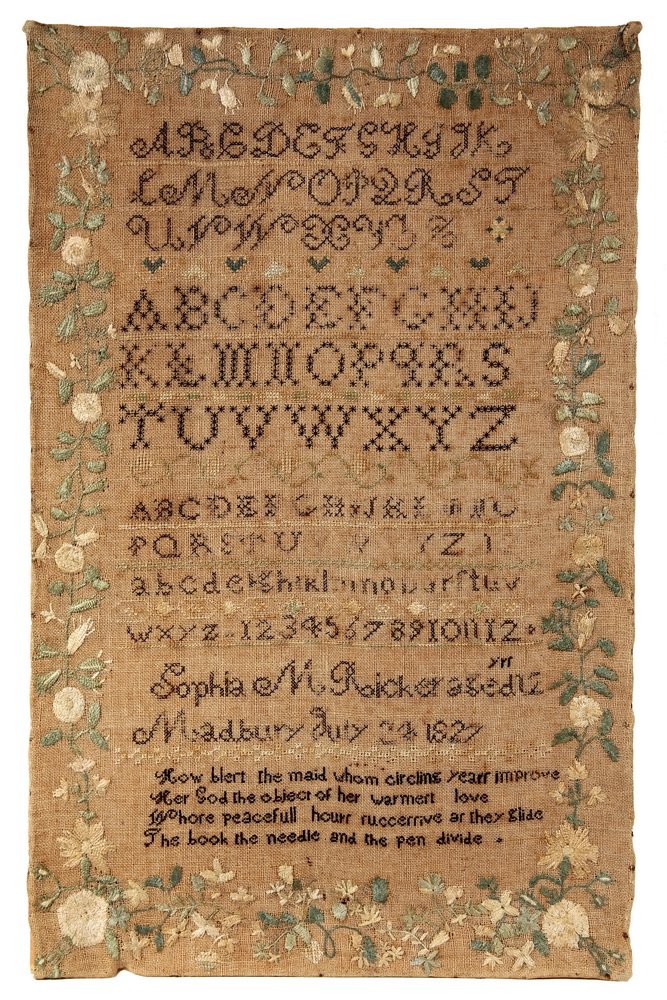 A B C D E F G H I J K
L M N O P Q R S T
U V W X Y Z &
A B C D E F G H I J
K L M N O P Q R S
T U V W X Y Z
A B C D E F G H I J K L M N O
P Q R S T U W Y Z
a b c d e f g h i k l m n o p q r ſ t u v
w x y z 1 2 3 4 5 6 7 8 9 10 11 12
Sophia M Ricker aged 12 yrſ
Madbury July 24 1827
How bleſt the maid whom circling yearſ improve
Her God the object of her warmeſt love
Whoſe peacefull hourſ ſucceſſive aſ they glide
The book the needle and the pen divide .